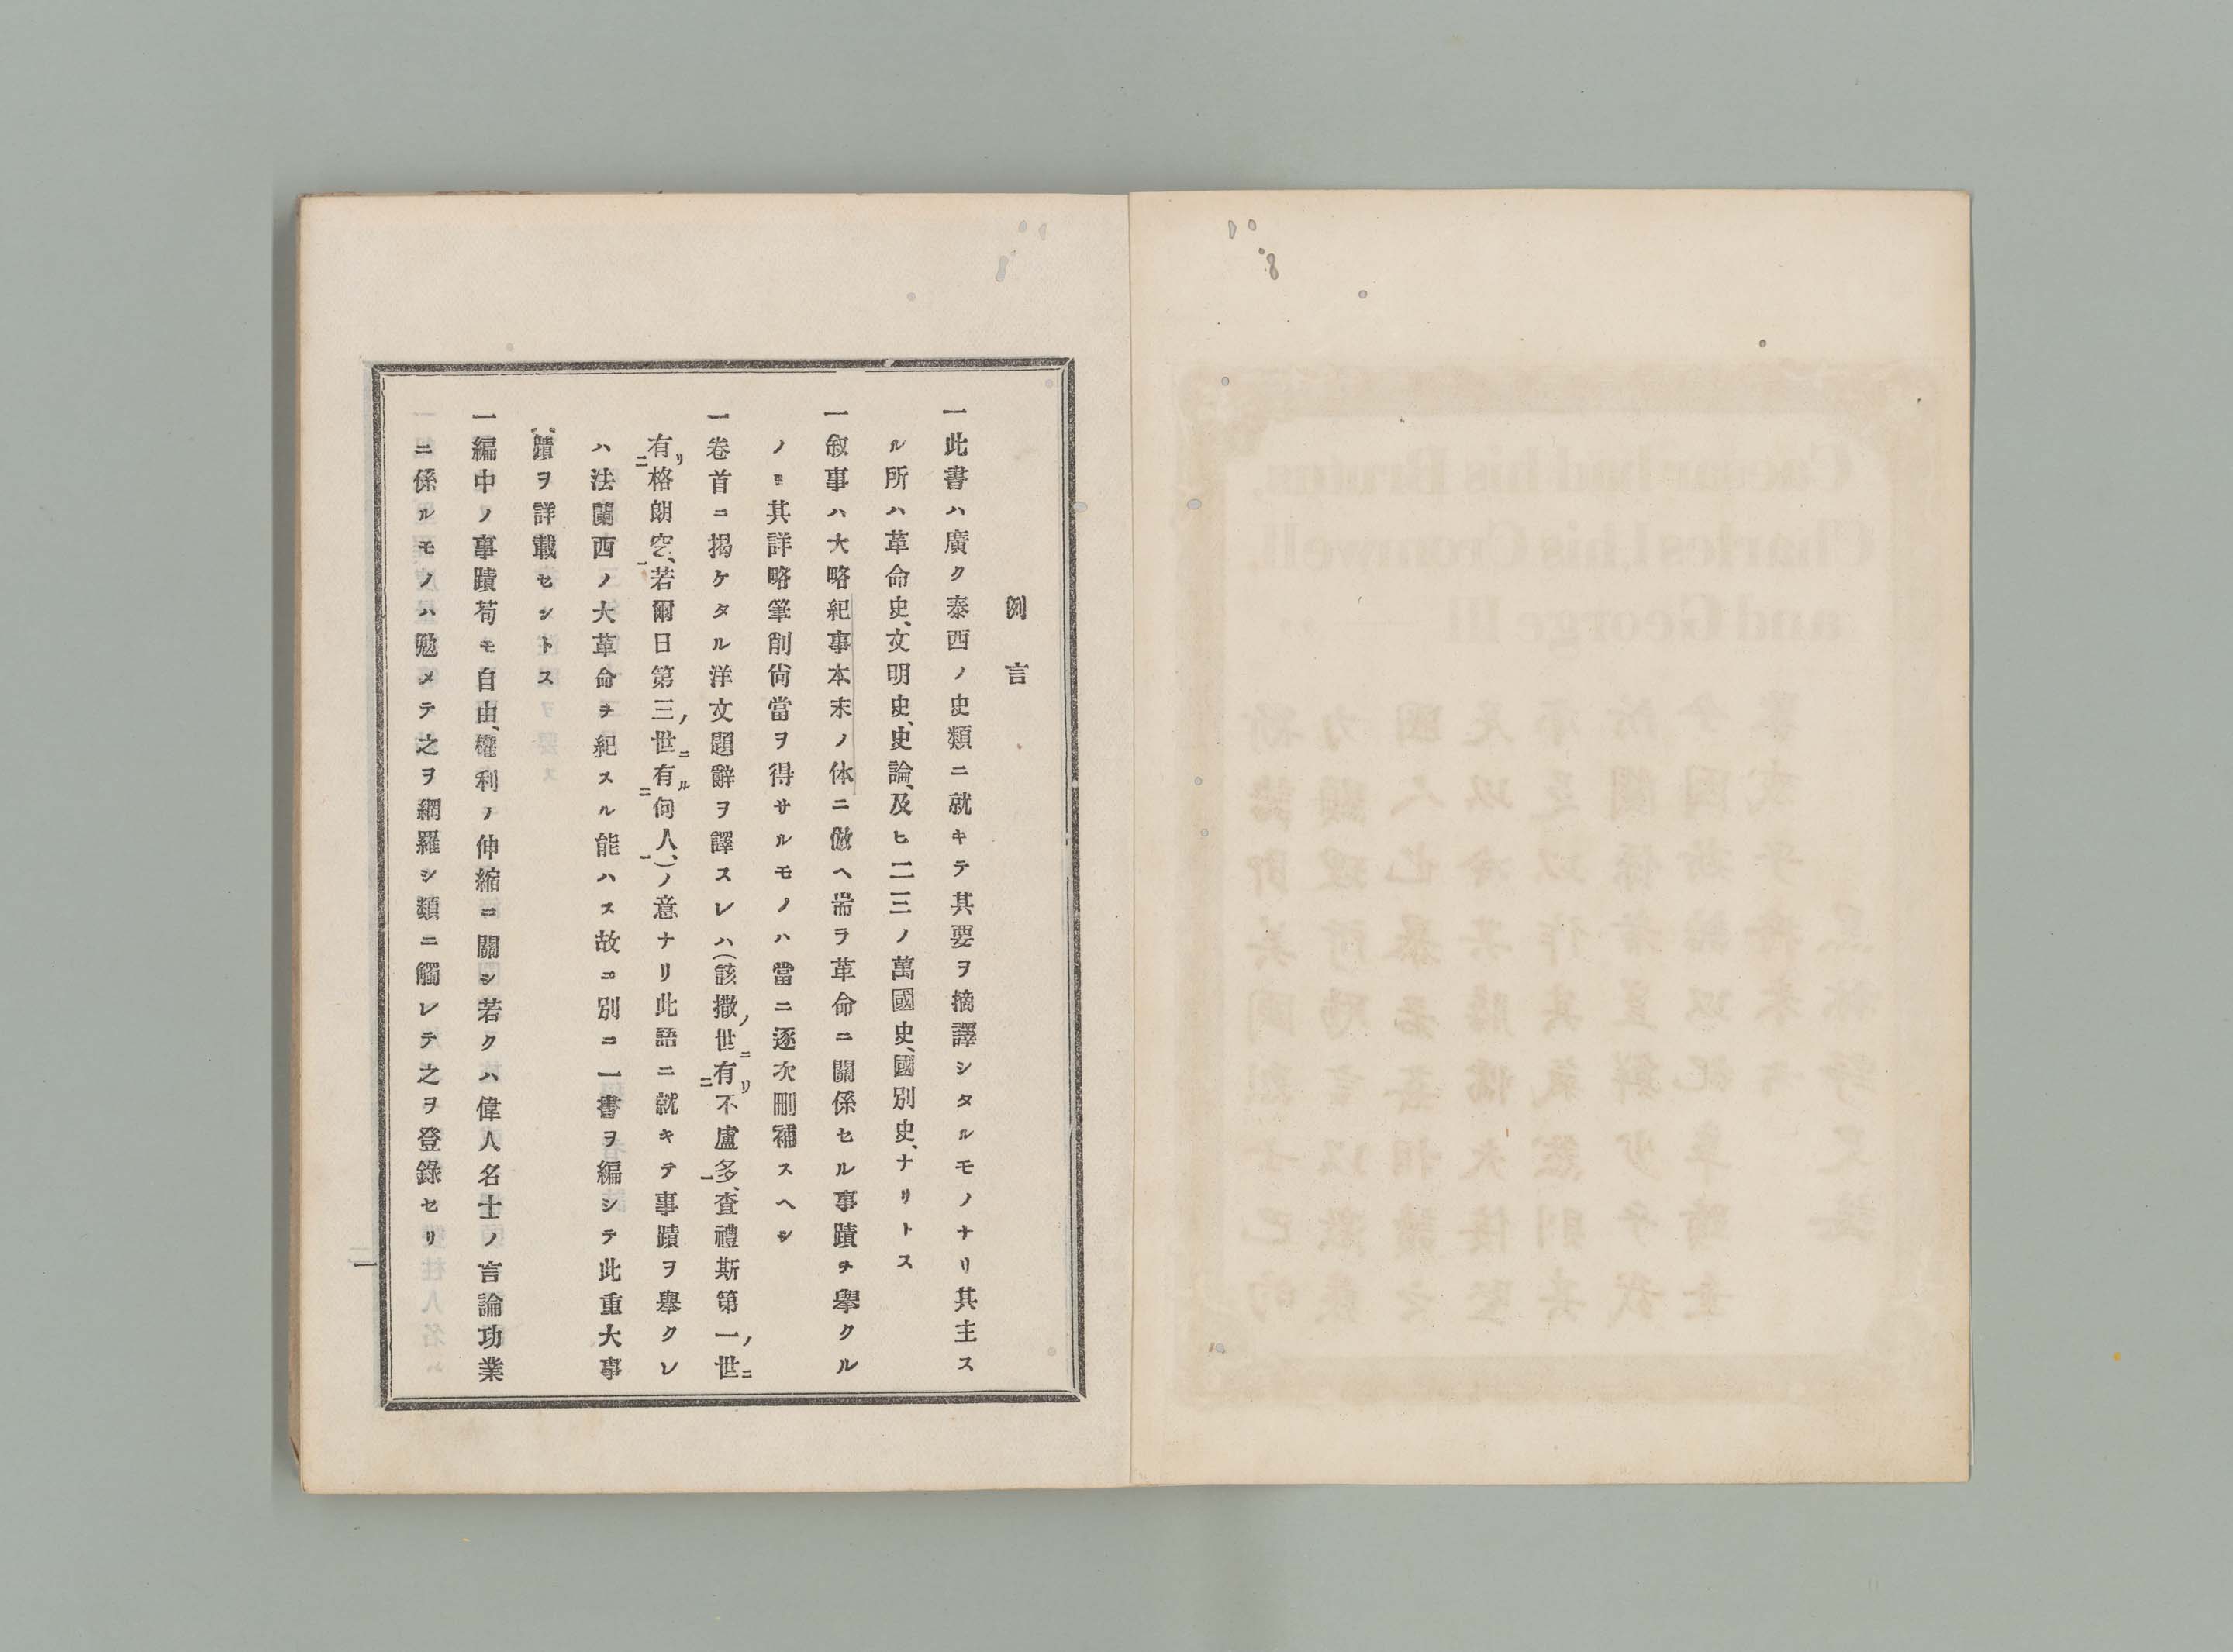 例言
一此書ハ廣ク泰西ノ史類ニ就キテ其要ヲ摘譯シタルモノナリ其主ス
ル所ハ革命史、文明史、史論、及ヒ二三ノ萬國史、國別史、ナリトス
一敘事ハ大略紀事本末ノ体ニ倣ヘ耑ラ革命ニ關係セル事蹟ヲ擧クル
ノミ其詳略筆削尙當ヲ得サルモノハ當ニ逐次刪補スヘシ
一卷首ニ揭ケタル洋文題辭ヲ譯スレハ(該撒ノ世ニ有リ二不盧多一、査禮斯第一ノ世ニ
有リ二格朗空一、若爾日第三ノ世ニ有ル二何人一、)ノ意ナリ此語ニ就キテ事蹟ヲ擧クレ
ハ法蘭西ノ大革命ヲ紀スル能ハス故ニ別ニ一書ヲ編シテ此重大事
蹟ヲ詳載セントス
一編中ノ事蹟苟モ自由、權利ノ伸縮ニ關シ若クハ偉人名士ノ言論功業
ニ係ルモノハ勉メテ之ヲ網羅シ類ニ觸レテ之ヲ登錄セリ
一